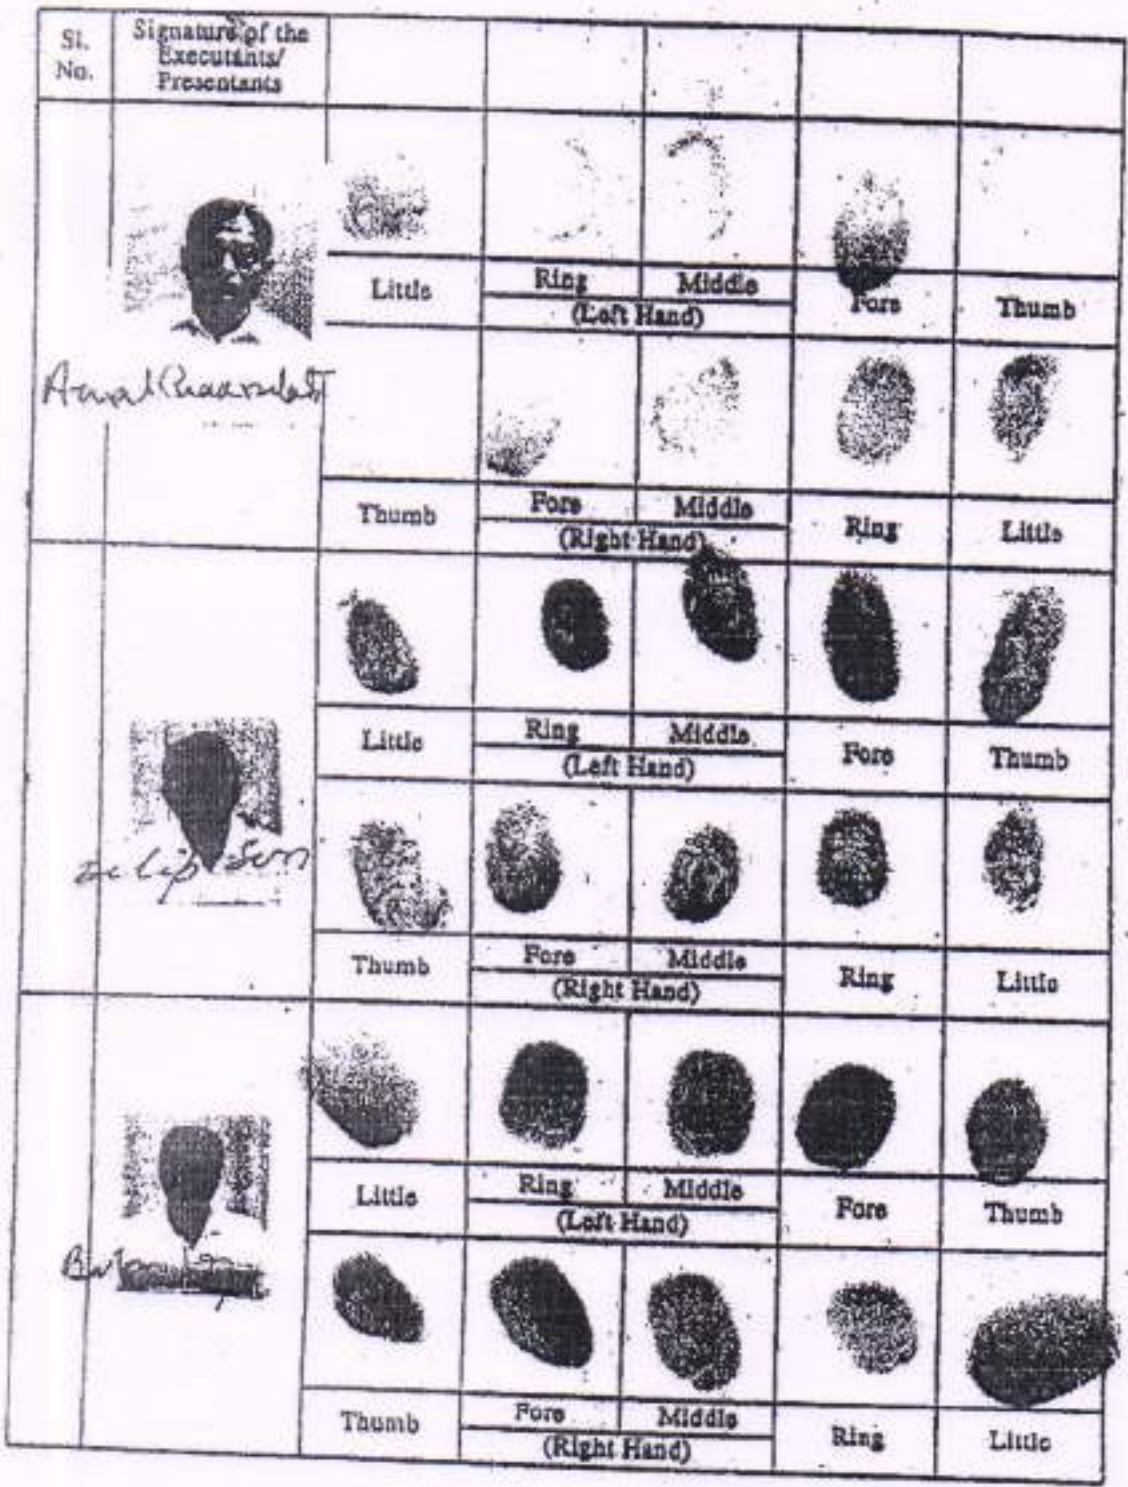 Sl. No.
Signature of the Executants/ Presentants
Little
Ring
Middle
Fore
Thumb
(Left Hand)
Thumb
Fore
Middle
Ring
Little
(Right Hand)
Little
Ring
Middle
Fore
Thumb
(Left Hand)
Dilip Sen
Thumb
Fore
Middle
Ring
Little
(Right Hand)
Little
Ring
Middle
Fore
Thumb
(Left Hand)
Thumb
Fore
Middle
Ring
Little
(Right Hand)